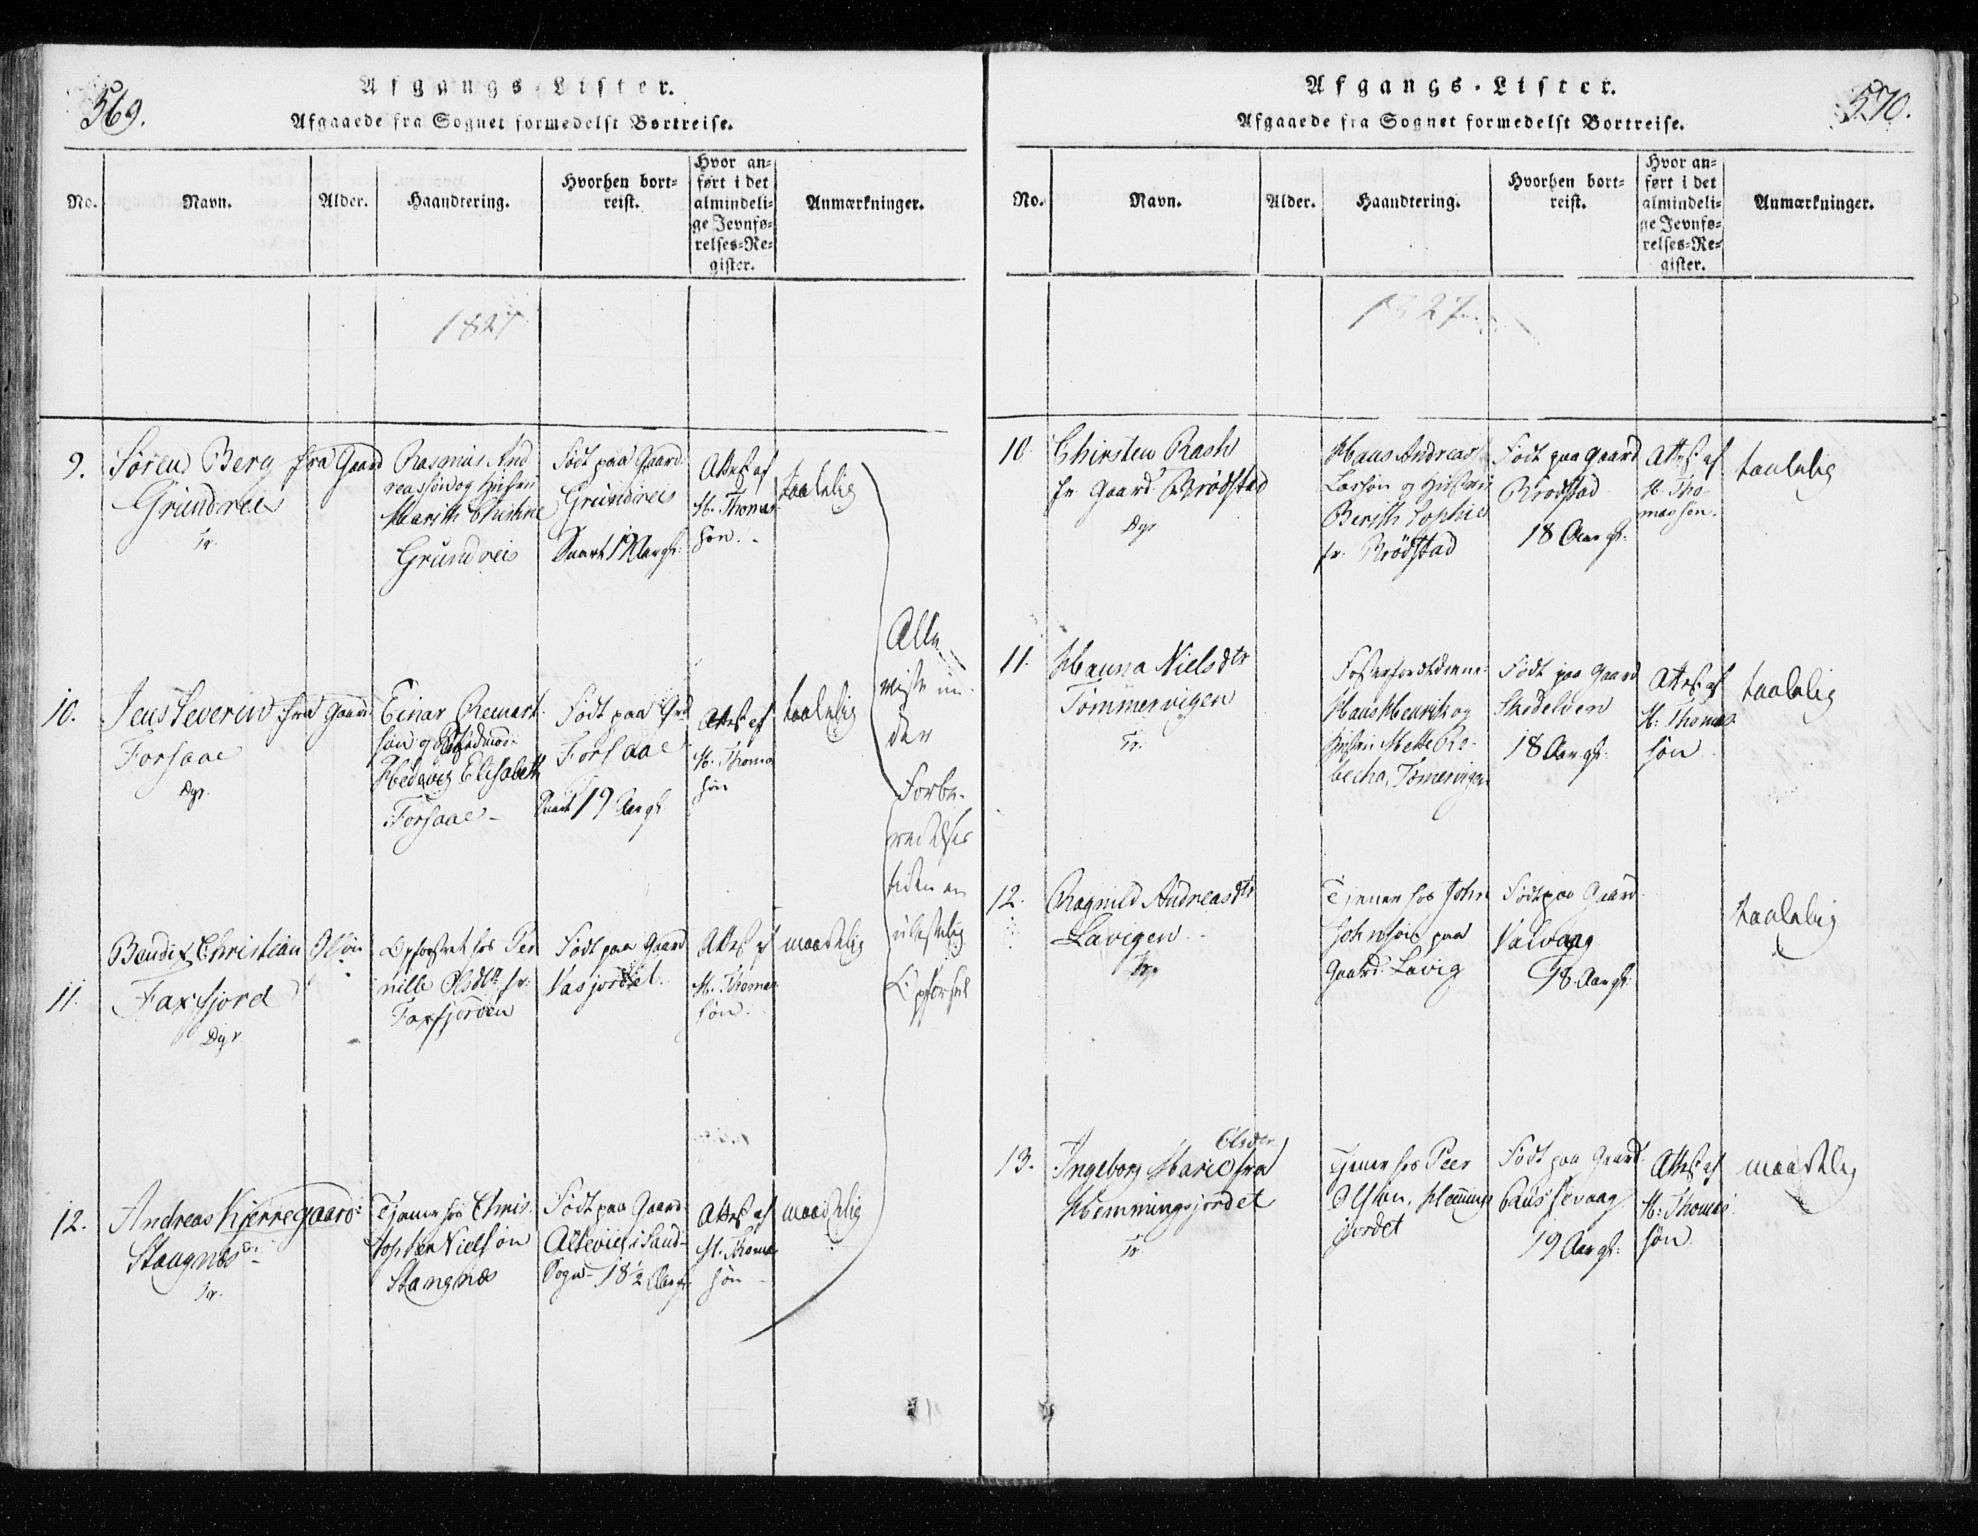 569.
Afgangs-Lister.
Afgaaede fra Sognet formedelst Bortreise.
No.
Navn.
Alder.
Haandtering.
Hvorhen bort-
reist.
Hvor an-
ført i det
almindeli-
ge Jevnfø-
relses-Re-
gister.
Anmærkninger.
1827
9.
Søren Berg fra Gaard
Grundreis
Tr.
Rasmus And
reassøn og Hustru
Marith
Grundreis
Født paa Gaard
Grundreis
19 Aar gl.
Attest af
H. Thomas
søn.
taalelig
10.
Jens Severin fra Gaard
Forsaae
Dgr.
Einar Remart
søn og
Hedevig Elisabeth
Forsaae
Født paa Grd
Forsaae
19 Aar gl
Attest af
H. Thoma
søn
taalelig
11.
Bendix Christian Olsøn
Faxfjord
Dgr
Opfostret hos Per
nille Olsdtr fr.
Faxfjorden
Født paa Gaard
Vasjordet.
Attest af
H. Thomas
søn.
maadelig
12.
Andreas Kjerregaard
Stangnæs
Tr.
Tjener hos Chris-
topher Nielsøn
Stangnæs
Født paa Gaard
Altevig i Sand-
Sogn 18 1/2 Aar gl
Attest af
H. Thomas
søn
maadelig
Alle
viste un-
der
Forbe-
redelses
tiden en
ulastelig
Opførsel
570.
Afgangs-Lister.
Afgaaede fra Sognet formedelst Bortreise.
No.
Navn.
Alder.
Haandtering.
Hvorhen bort-
reist.
Hvor an-
ført i det
almindeli-
ge Jevnfø-
relses-Re-
gister.
Anmærkninger.
1827
10
Chirsten Rash
fr. Gaard Brødstad
Dgr
Hans Andreas
Larsøn og Hustrue
Berith Sophie
fr. Brødstad
Født paa Gaard
Brødstad
18 Aar gl.
Attest af
H. Tho
massøn.
taalelig
11.
Hanna Nielsdtr
Tømmervigen
Tr.
Fosterforældrene
Hans Henrik og
Hustru Mette Re-
becha, Tømervigen
Født paa Gaard
Skedelven
18 Aar gl.
Attest af
H. Thomas
søn
taalelig
12.
Ragnild Andreasdtr
Lavigen
Tr.
Tjener hos John
Johnsøn paa
Gaard Lavig
Født paa Gaard
Valvaag
18 Aar gl.
taalelig
13.
Olsdtr
Ingeborg Marie fra
Hemmingsjordet
Tr
Tjener hos Peer
Olsøn, Hemmings
jordet
Født paa Gaard
Russevaag
19 Aar gl.
Attest af
H. Thomas
søn.
maadelig